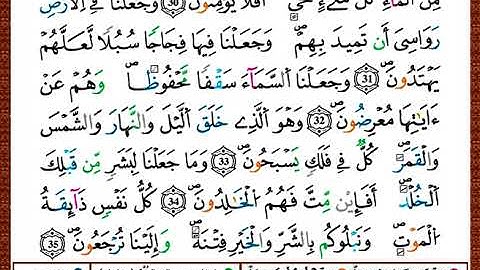 مِنَ ٱلْمَآءِ كُلَّ شَىْءٍ حَىٍّ أَفَلَا يُؤْمِنُونَ 30 وَجَعَلْنَا فِى ٱلْأَرْضِ
رَوَٰسِىَ أَن تَمِيدَ بِهِمْ وَجَعَلْنَا فِيهَا فِجَاجًا سُبُلًا لَّعَلَّهُمْ
يَهْتَدُونَ 31 وَجَعَلْنَا ٱلسَّمَآءَ سَقْفًا مَّحْفُوظًا وَهُمْ عَنْ
ءَايَٰتِهَا مُعْرِضُونَ 32 وَهْوَ ٱلَّذِى خَلَقَ ٱلَّيْلَ وَٱلنَّهَارَ وَٱلشَّمْسَ
وَٱلْقَمَرَ كُلٌّ فِى فَلَكٍ يَسْبَحُونَ 33 وَمَا جَعَلْنَا لِبَشَرٍ مِّن قَبْلِكَ
ٱلْخُلْدَ أَفَإِي۟ن مِّتَّ فَهُمُ ٱلْخَٰلِدُونَ 34 كُلُّ نَفْسٍ ذَآئِقَةُ
ٱلْمَوْتِ وَنَبْلُوكُم بِٱلشَّرِّ وَٱلْخَيْرِ فِتْنَةً وَإِلَيْنَا تُرْجَعُونَ 35